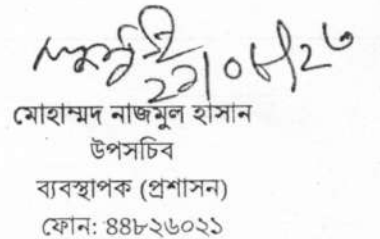 মোহাম্মদ নাজমুল হাসান
উপসচিব
ব্যবস্থাপক (প্রশাসন)
ফোন: ৪৪৮২৬০২১